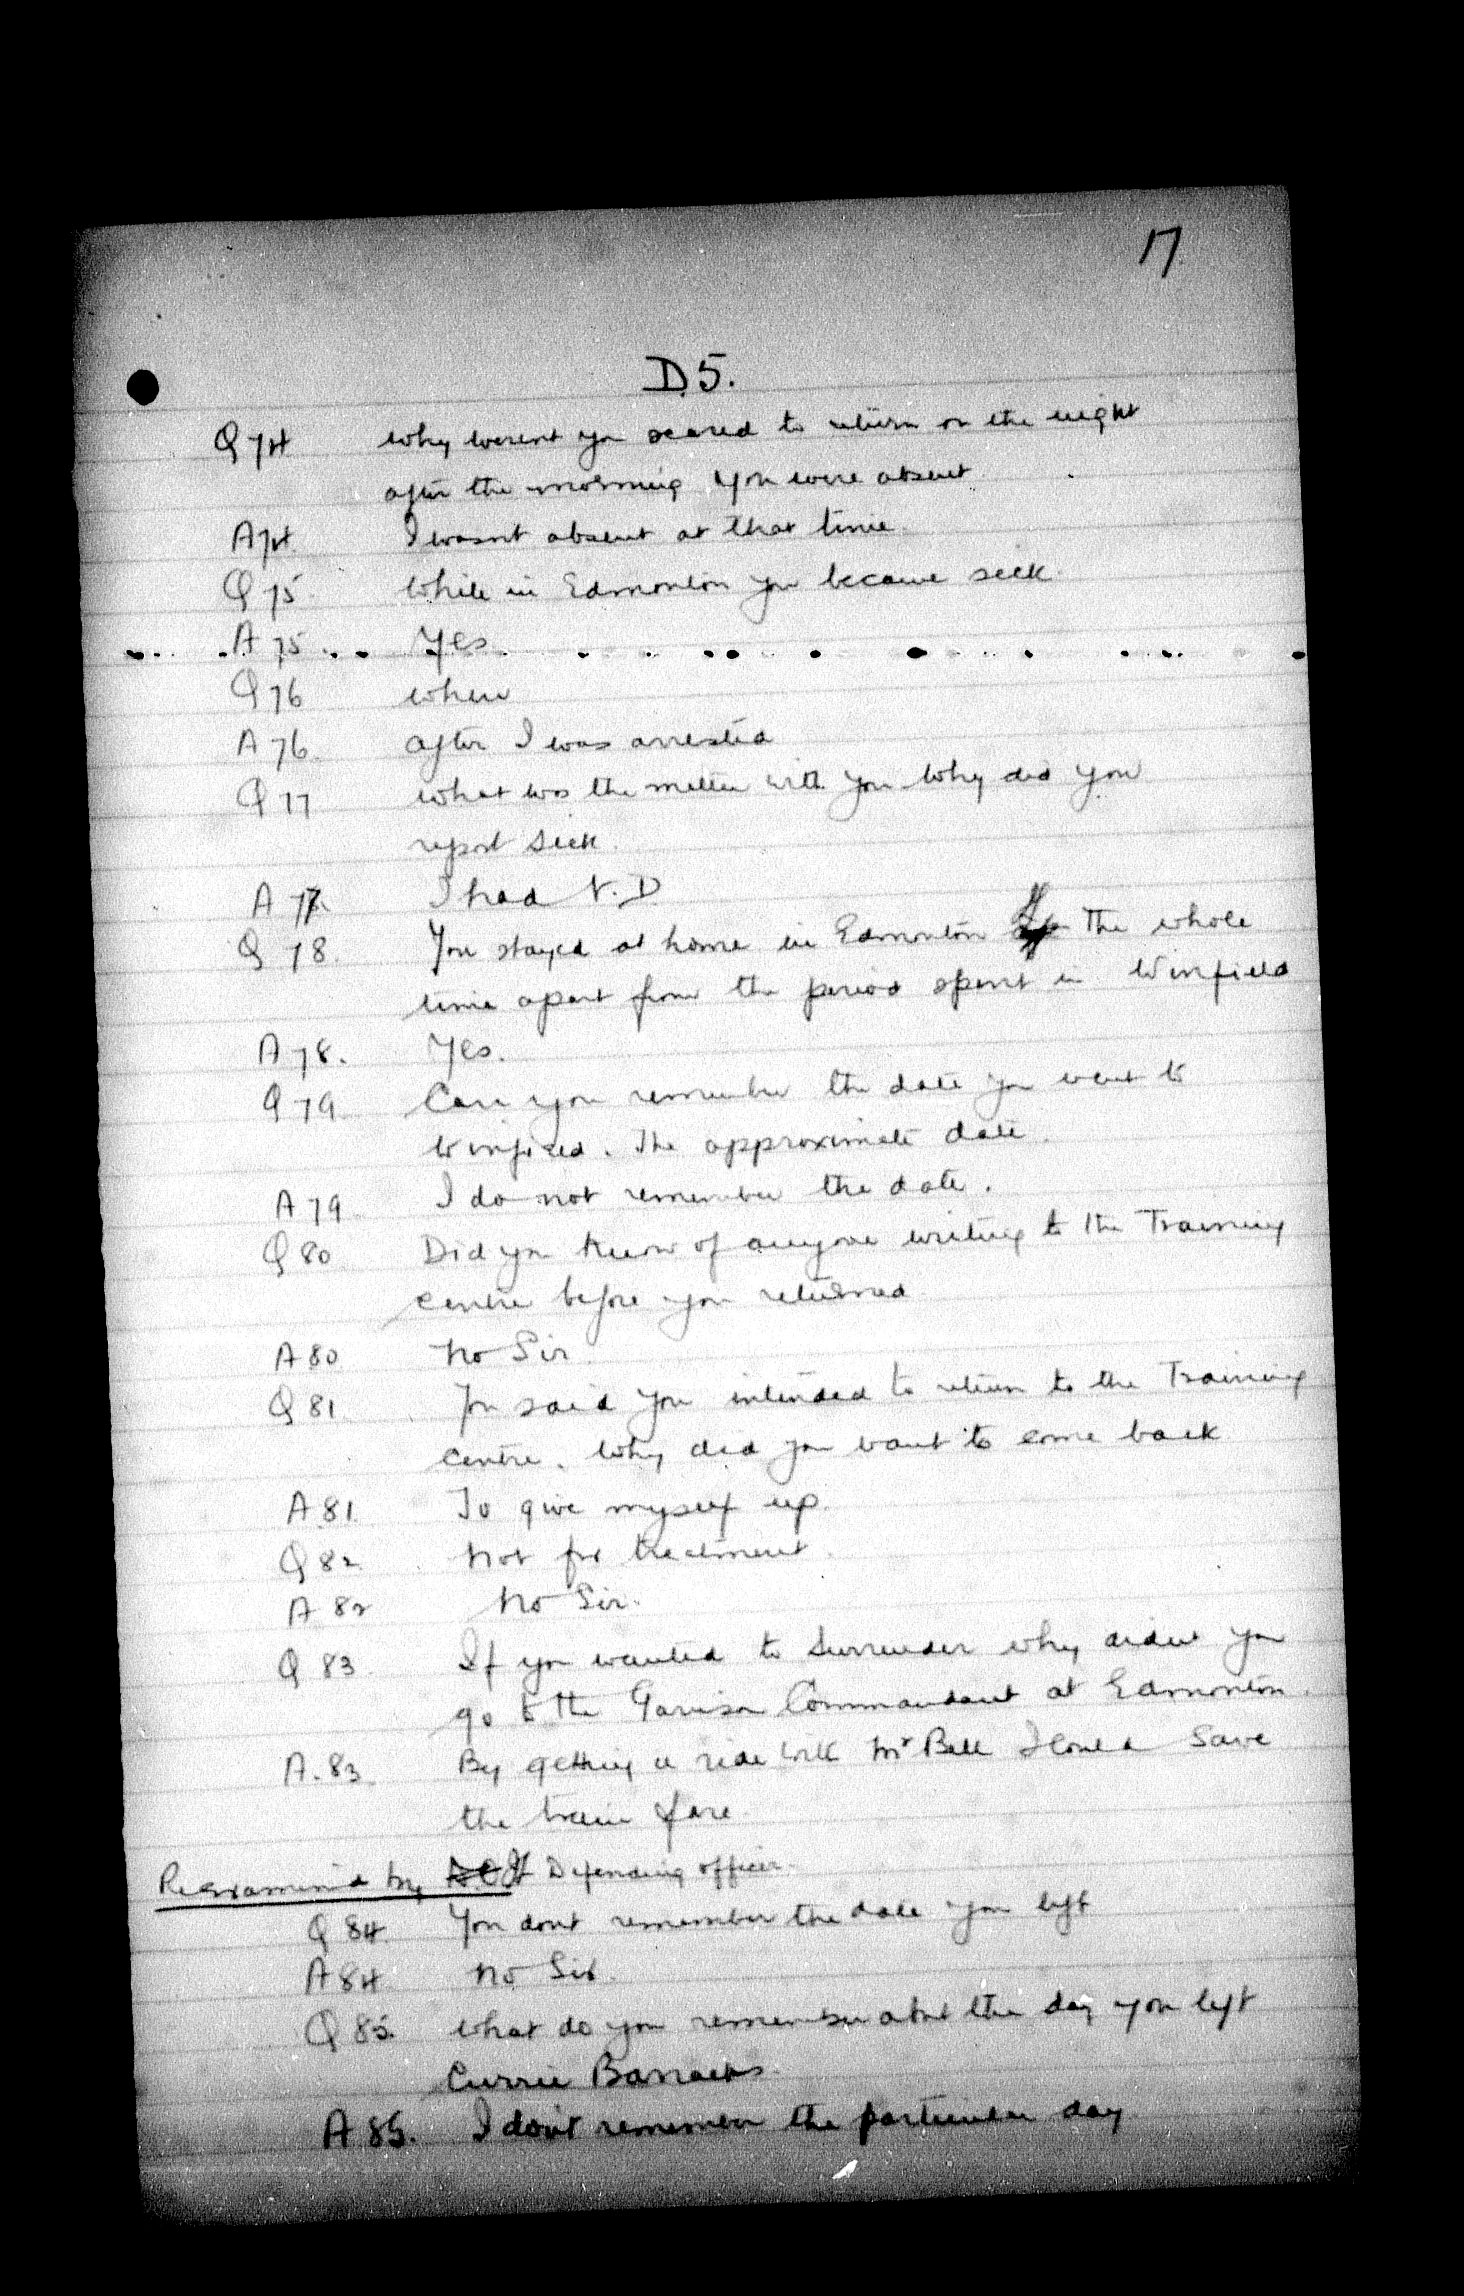 17
D5.
Q 74 Why werent you scared to return on the night
after the morning you were absent
A 74 I wasnt absent at that time
Q 75 While in Edmonton you became sick
A 75 Yes
Q 76 when
A 76 after I was arrested
Q 77 what was the matter with you Why did you
report sick
A 77 I had V.D
Q 78 You stayed at home in Edmonton the whole
time apart from the period spent in Winfield
A 78. Yes.
Q 79 Can you remember the date you went to
Winfield. The approximate date
A 79 I do not remember the date.
Q 80 Did you know of anyone writing to the Training
centre before you returned
A 80 No Sir
Q 81 You said you intended to return to the Training
centre. Why did you want to come back
A 81 To give myself up.
Q 82 Not for treatment
A 82 No Sir.
Q 83 If you wanted to surrender why didnt you
go to the Garrison Commandant at Edmonton
A. 83 By getting a ride with Mr Bell I could save
the train fare
Reexamined by Defending officer
Q 84 You dont remember the date you left
A 84 No Sir.
Q 85. What do you remember about the day you left
Currie Barracks
A 85. I don't remember the particular day